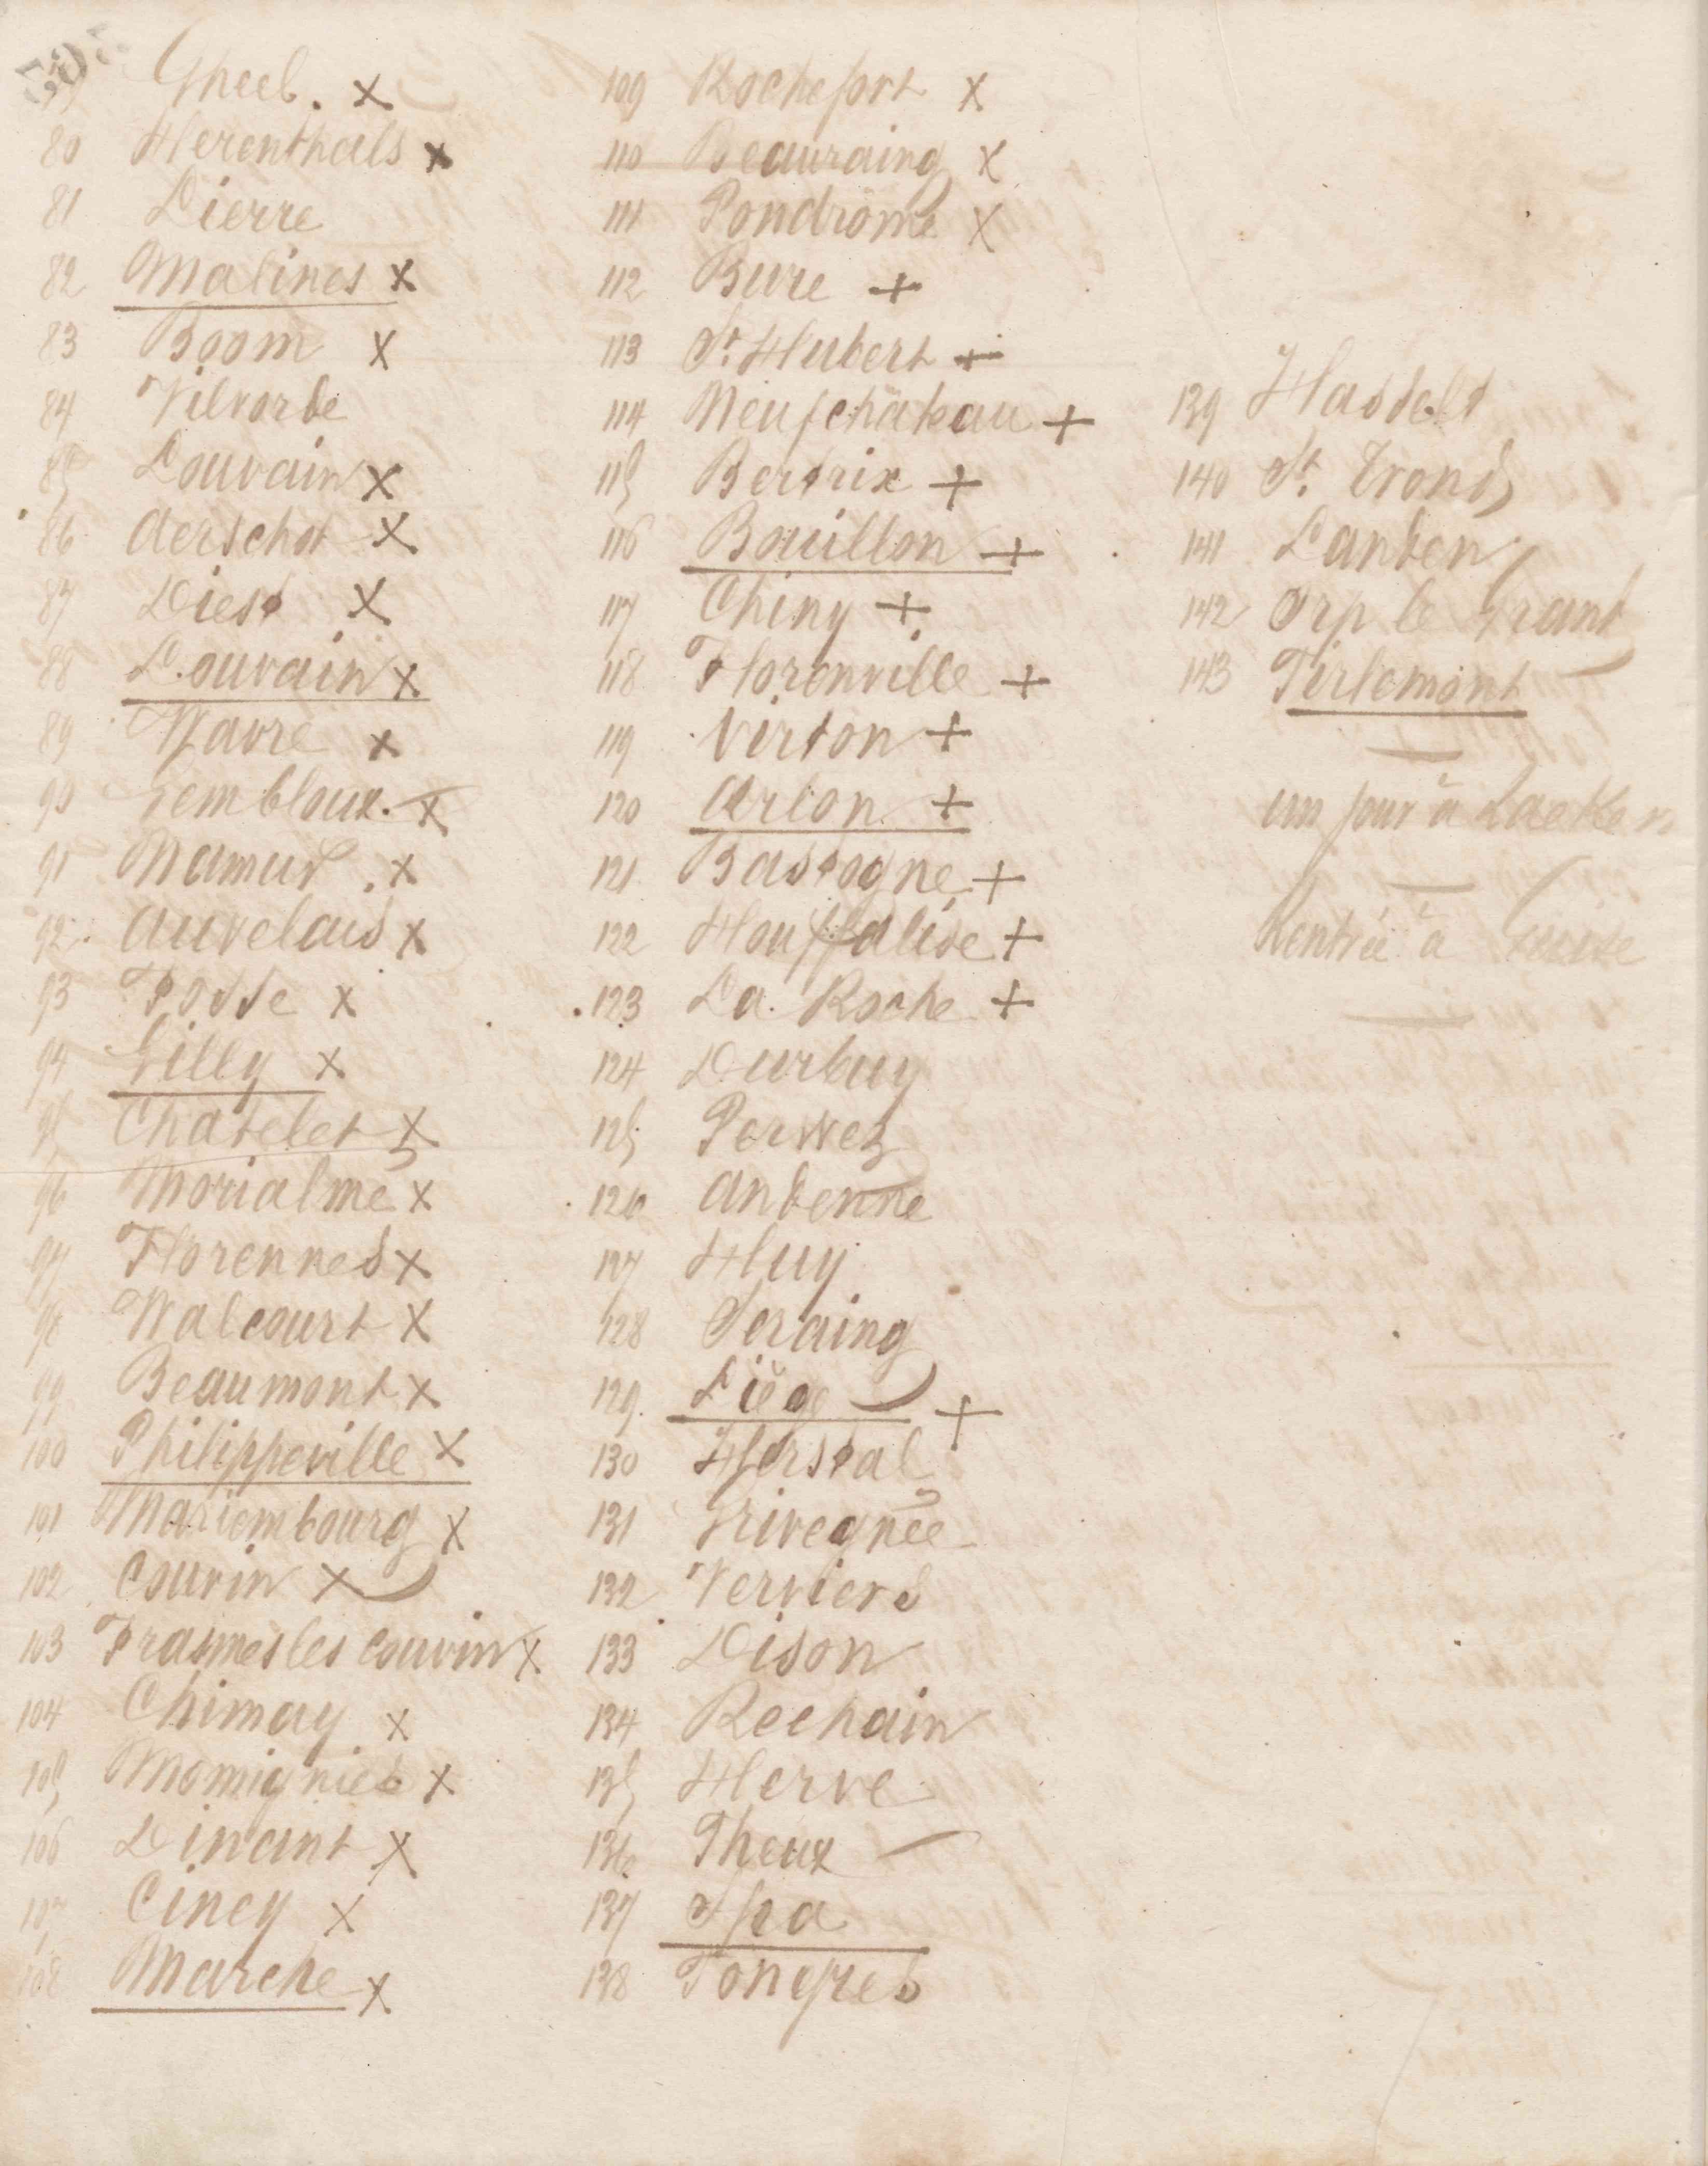 79 Gheel. x
80 Herenthals x
81 Lierre
82 Malines x
83 Boom x
84 Vilvorde
85 Louvain x
86 Aerschot x
87 Diest x
88 Louvain x
89 Wavre x
90 Gembloux. x
91 Namur . x
92. Auvelais x
93 Fosse x
94 Gilly x
95 Chatelet x
96 Morialmé x
97 Florennes x
98 Walcourt x
99 Beaumont x
100 Philippeville x
101 Mariembourg x
102 Couvin x
103 Frasnes les Couvin x
104 Chimay x
105 Momignies x
106 Dinant x
107 Ciney x
108 Marche x
109 Rochefort x
110 Beauraing x
111 Pondrome x
112 Bure +
113 St. Hubert +
114 Neufchateau +
115 Bertrix +
116 Bouillon +
117 Chiny +
118 Florenville +
119 Virton +
120 Arlon +
121 Bastogne +
122 Houffalise +
123 La. Roche +
124 Durbuy
125 Perwez
126 Andenne
127 Huy
128 Seraing
129. Liège +
130 Herstal
131 Grivegnée
132 Verviers
133 Dison
134 Rechain
135 Herve
136 Theux
137 Spa
138 Tongres
139 Hasselt
140 St. Trond
141 Landen
142 Orp le Grand
143 Tirlemont
un jour à Laeken
Rentrée à Guise